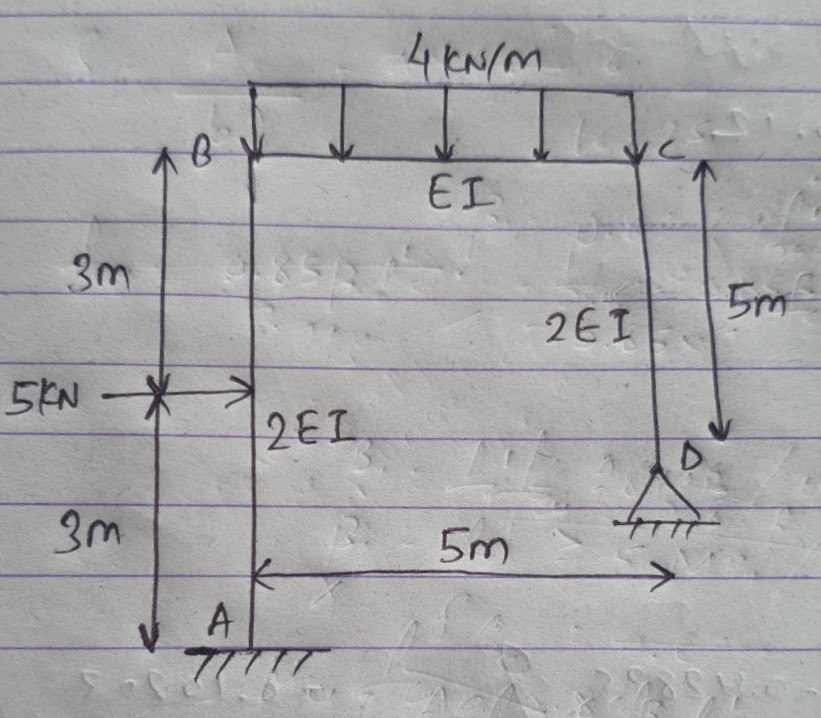 4KN/m
B
C
EI
3m
2EI
5m
5KN
2EI
D
3m
5m
A